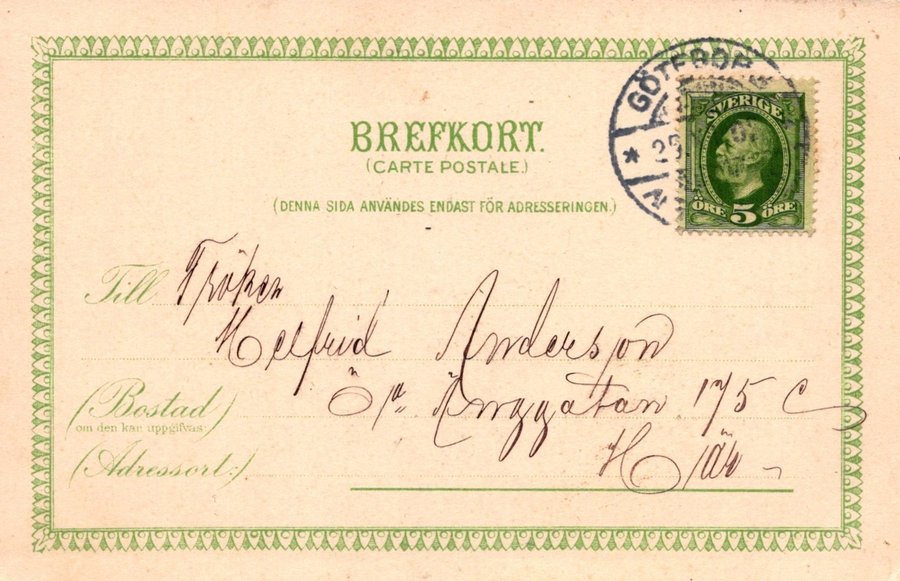 BREFKORT.
(CARTE POSTALE.)
(DENNA SIDA ANVÄNDES ENDAST FÖR ADRESSERINGEN.)
GÖTEBORG
SVERIGE
ÖRE 5 ÖRE
Till Fröken
Helfrid Anderson
(Bostad)
om den kan uppgifvas
Ö
(Adressort:)
Här